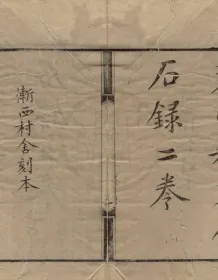 石録二卷
漸西村舍刻本